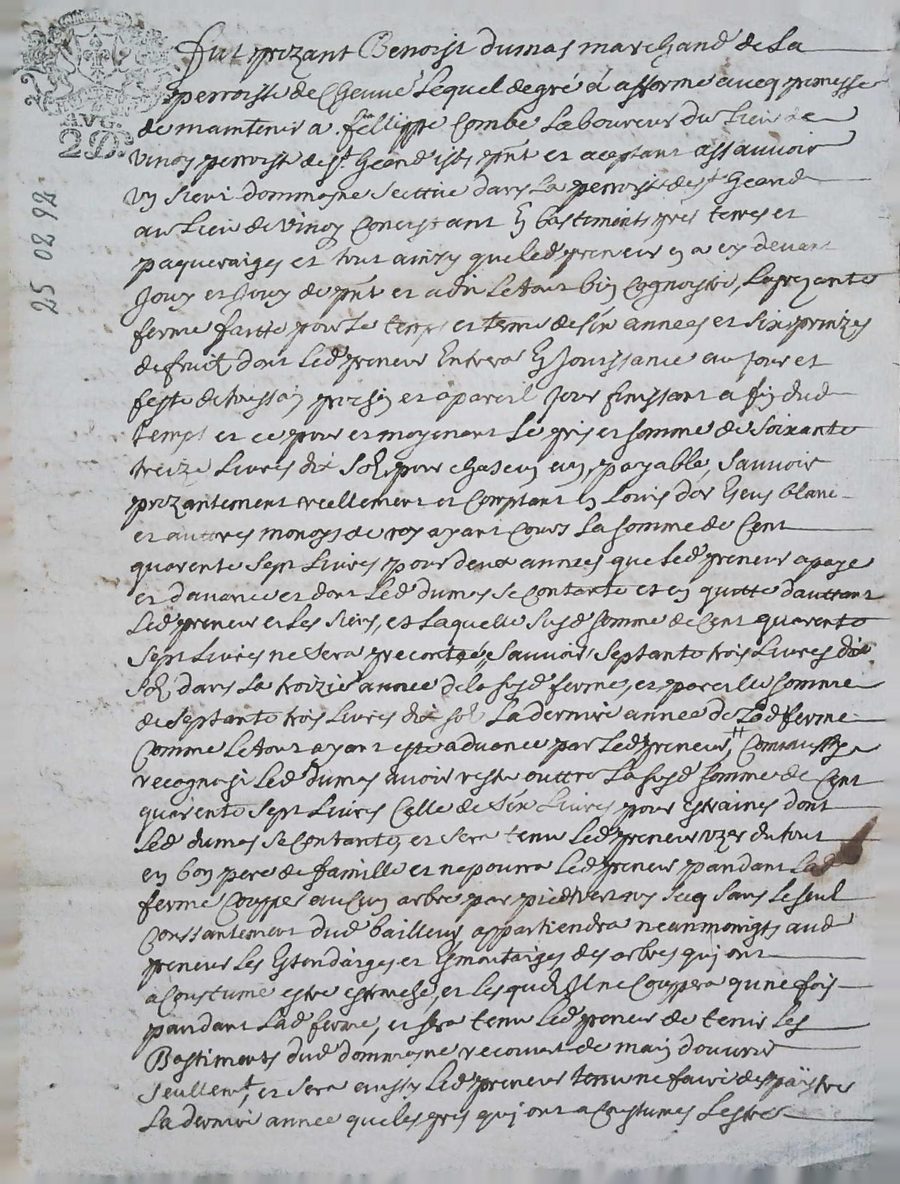 AVG.
2 D.
25 02 92
fut prezant Benoist dumas marchand de La
perroisse de Lequel de gré a afferme avecq promesse
de maintenir a fellippe Combe Laboureur du Lieu de
vinoy perroisse de st Geand pnt et aceptant assavoir
un sieni dommayne scittué dans La perroisse de st Geand
au Lieu de vinoy Concistant en bastiments pres terres et
paqueraiges et tout ainsy que led preneur en a cy devant
Jouy et Jouy de pnt et a dit Le tout bien Cognoistre, La prezante
ferme faitte pour Le temps et terme de six annees et six prinzes
de fruit, dont Led preneur Entrera En Jouissance au Jour et
feste de toussain prochin et a pareil Jour finissant a fin dud
temps et ce pour et moyenant Le pris et somme de Soixante
treize Livres dix sol, pour chascun an, payable, Sauvoir
prezantement reellement et Comptant en Louis d'or Escus blanc
et auttres monoye de roy ayant Cours La somme de Cent
quarente Sept Livres pour deux annees que Led preneur a paye
et d'avance et dont Led dumas se Contante et en quitte d'auttant
Led preneur et Les siens, et Laquelle susd somme de Cent quarente
Sept Livres ne sera precontée, Sauvoir, Septante trois Livres dix
sol dans La troizie annee de la susd ferme, et pareille somme
de septante trois Livres dix sol La derniere annee de Lad ferme
Comme Le tout ayant esté advancé par Led preneur, Comm aussy a
recognu Led dumas avoir reste outtre La susd somme de Cent
quarente sept Livres Celle de six Livres pour estraines dont
Led dumas se Contante, et sera tenu Led preneur uzer du tout
en bon pere de famille et ne pourra Led preneur pandant Lad
ferme Coupper aucun arbre par pied vert ny secq sans Le seul
Consantement dud bailleur appartiendra neanmoingts aud
preneur Les Estondaiges et Esmontaiges des arbres qui ont
a Coustume estre et Lesquels Il ne Couppera qune fois
pandant Lad ferme, et sera tenu Led preneur de tenir Les
Bastiments dud dommayne recouvert de main d'ouvrier
seullemt, et sera aussy Led preneur tenu ne faire
La derniere annee que les pres qui ont a Coustumes Lestre